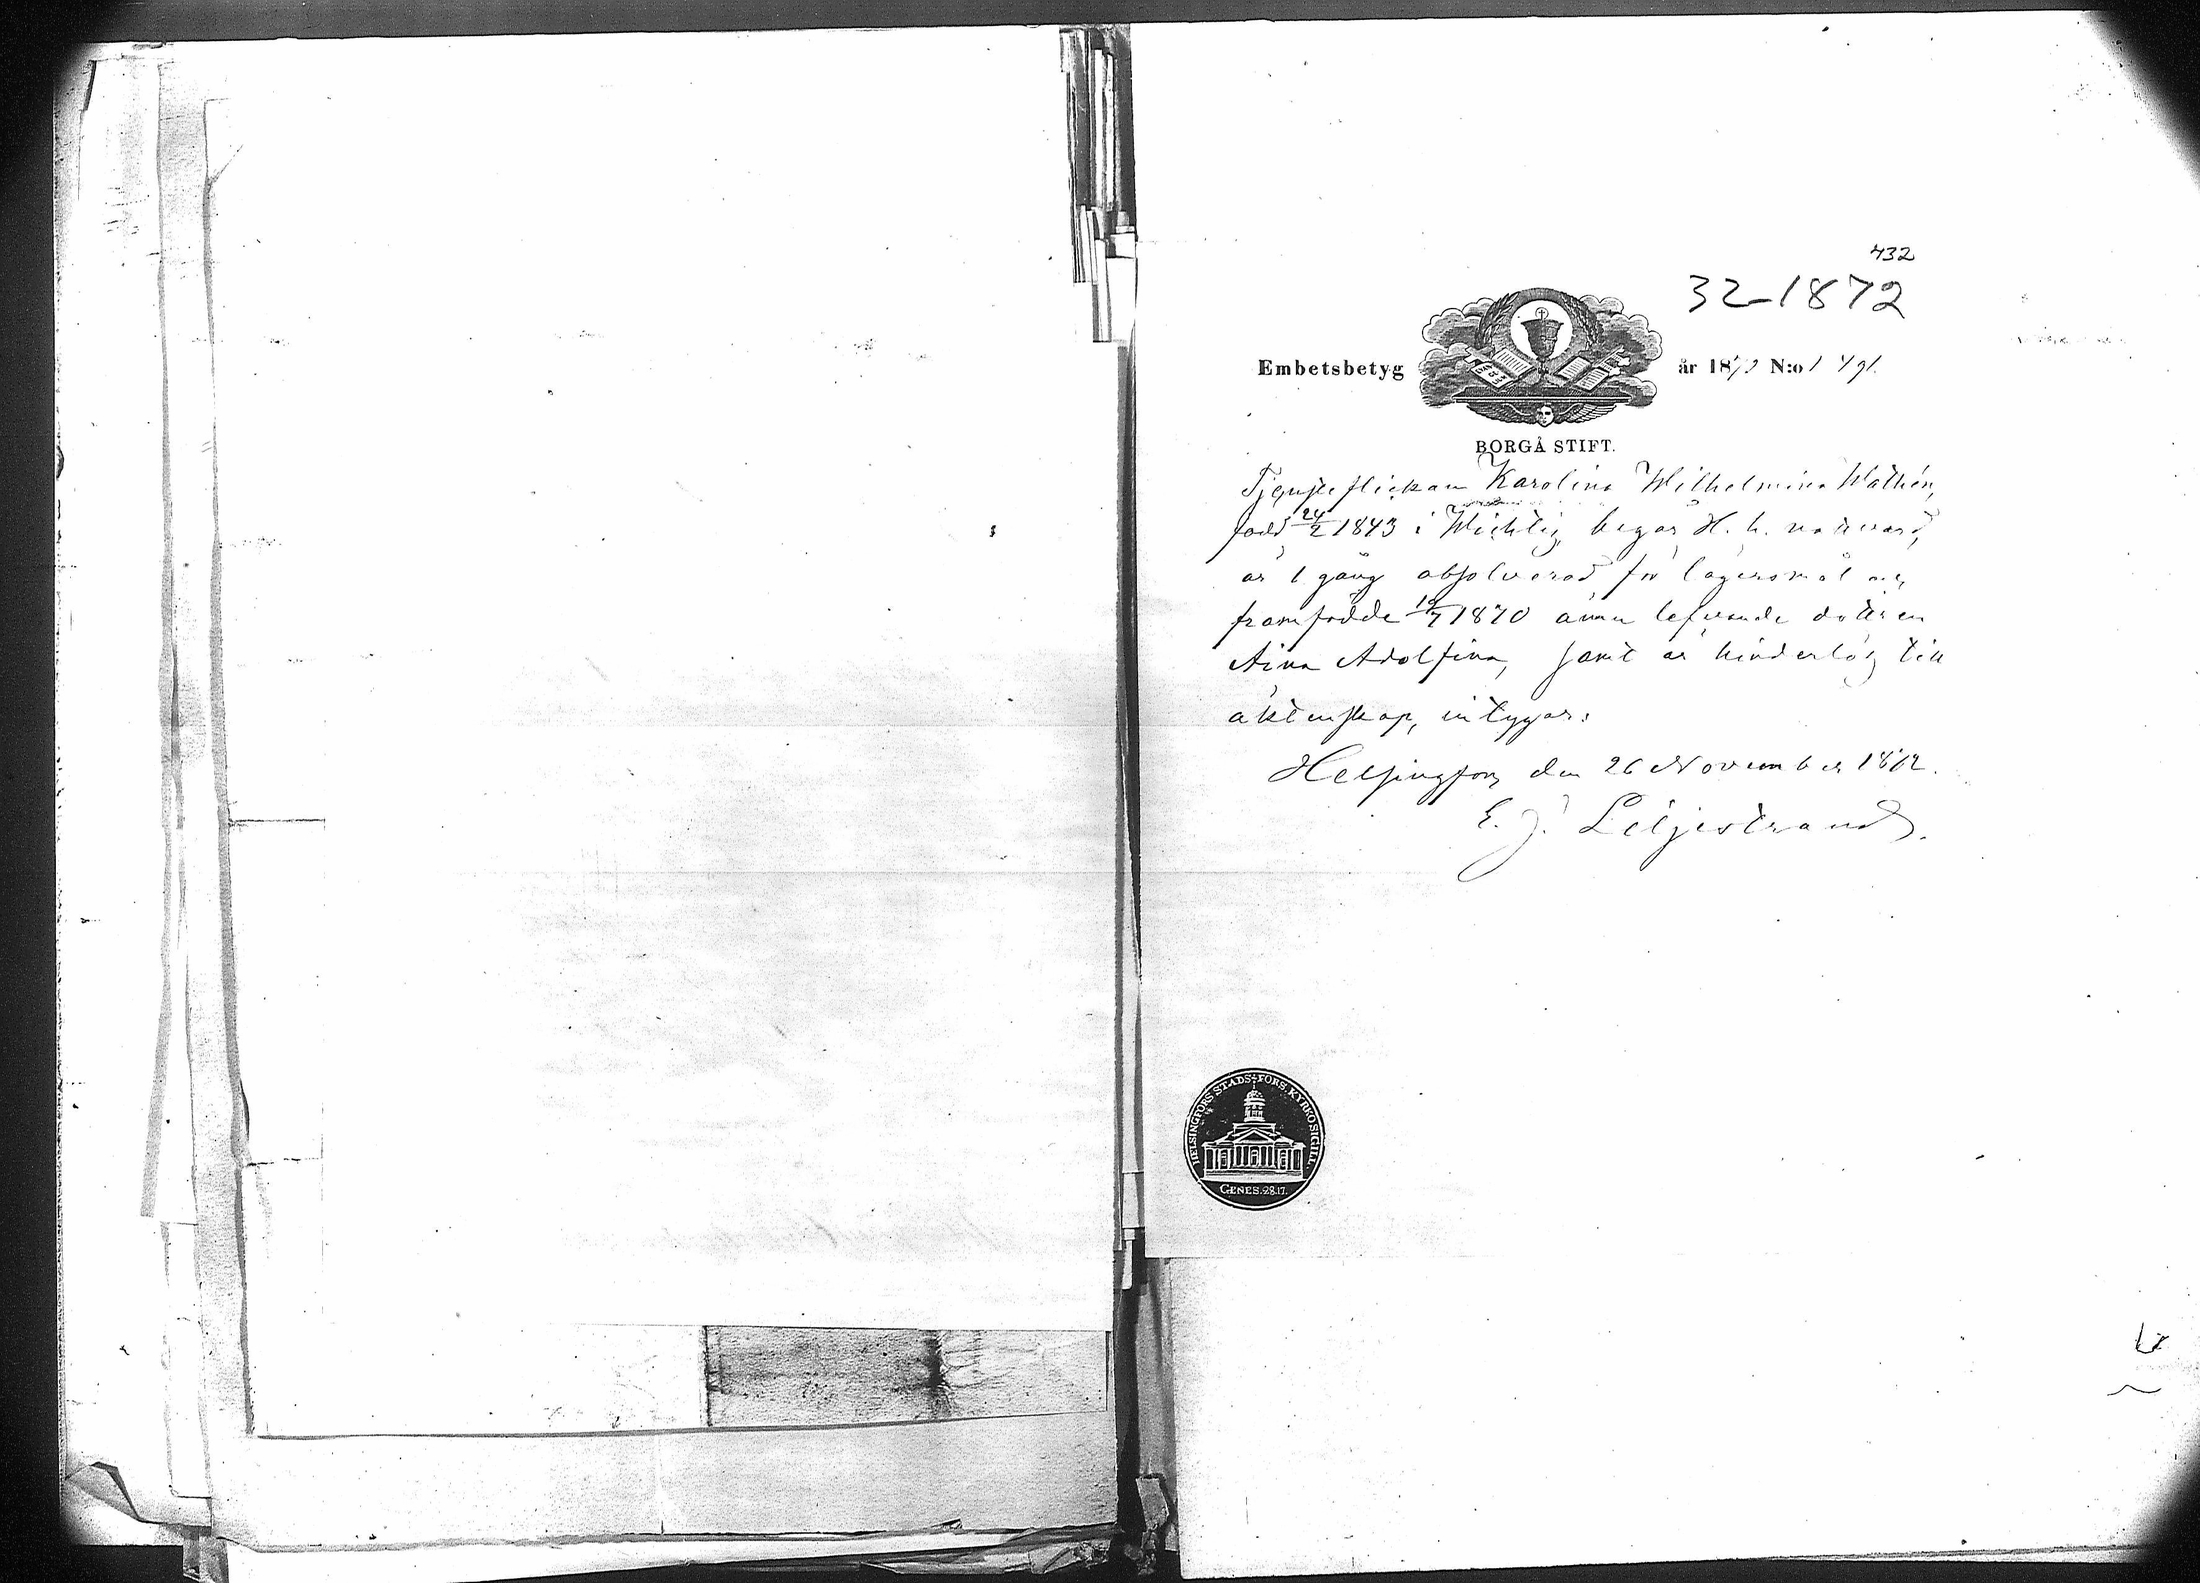 432
32-1872
Embetsbetyg år 1872 N:o 1491.
BORGÅ STIFT.
Tjenste flickan Karolina Wilhelmina Wathén,
född 24/2 1843 i Wichtis, begår H. h. nattvard,
är 1 gång absolverad för lägersmål och
framfödde 19/7 1870 ännu lefvande dottren
Aina Adolfina, samt är hinderlös till
äktenskap, intygar:
Helsingfors den 26 November 1872.
E. J. Liljestrand.
HELSINGFORS STADS-FÖRS. KYRKOSIGILL.
GENES. 28.17.